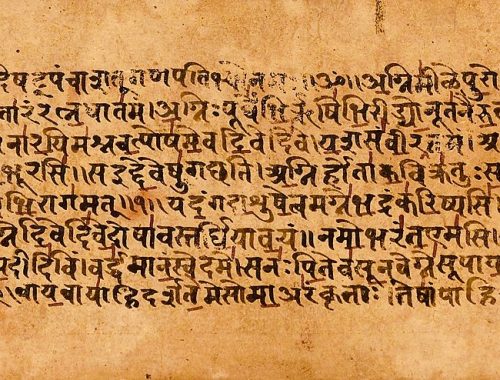 ॥ॐ॥ अग्निमीळे पुरो
तारं रत्नधातमं । अग्निः पूर्वेभिर्ऋषिभिरीड्यो नूतनैरु
रयिमश्नवत्पोषमेव दिवेदिवे । यशसं वीरवत्तमं । अ
भूरसि ॥ स इद्देवेषु गच्छति । अग्निर्होता कविक्रतुः स
भिरागमत् ॥१॥ यदंग दाशुषे त्वमग्ने भद्रं करिष्यसि
ग्ने दिवेदिवे दोषावस्तर्धिया वयं । नमो भरंत एमसि ।
दीदिविं । वर्द्धमानं स्वे दमे । स नः पितेव सूनवेग्ने सूपाय
वायवायाहि दर्शतेमे सोमा अरंकृताः । तेषां पाहि